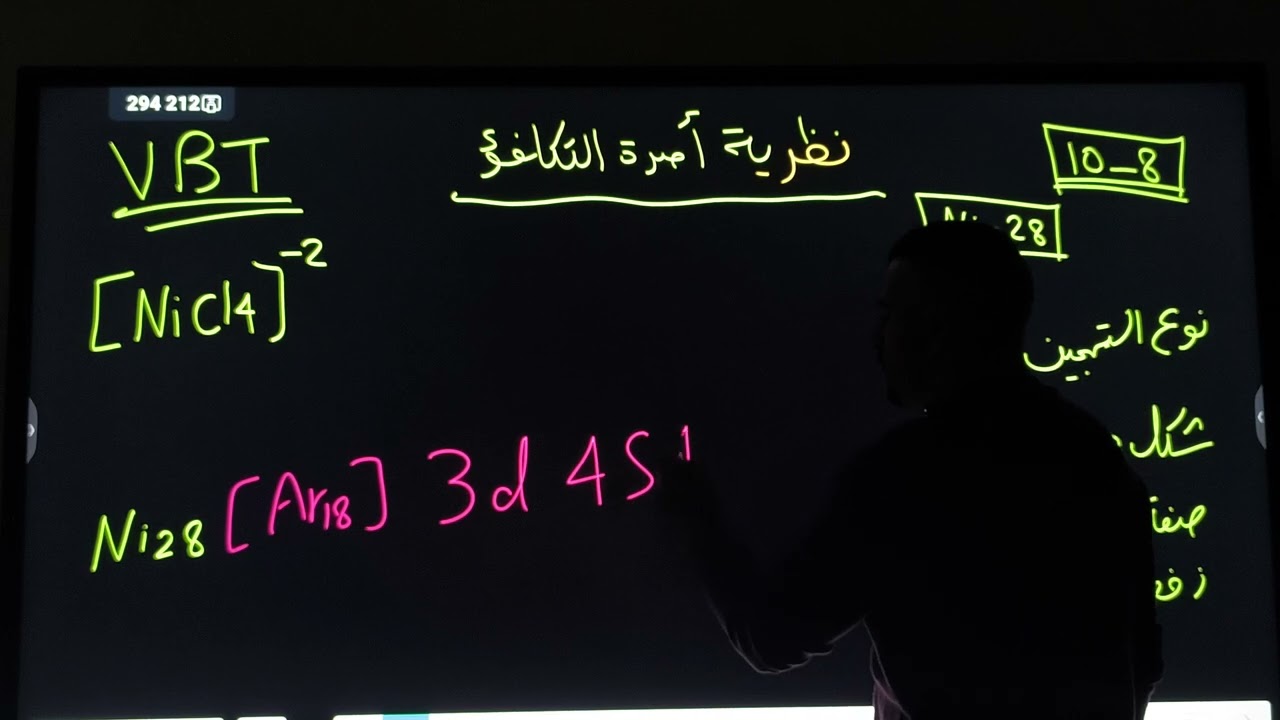 294 212
VBT
نظرية أصرة التكافؤ
10-8
28
[NiCl4]-2
نوع التهجين
شكل
Ni28 [Ar18] 3d 4S